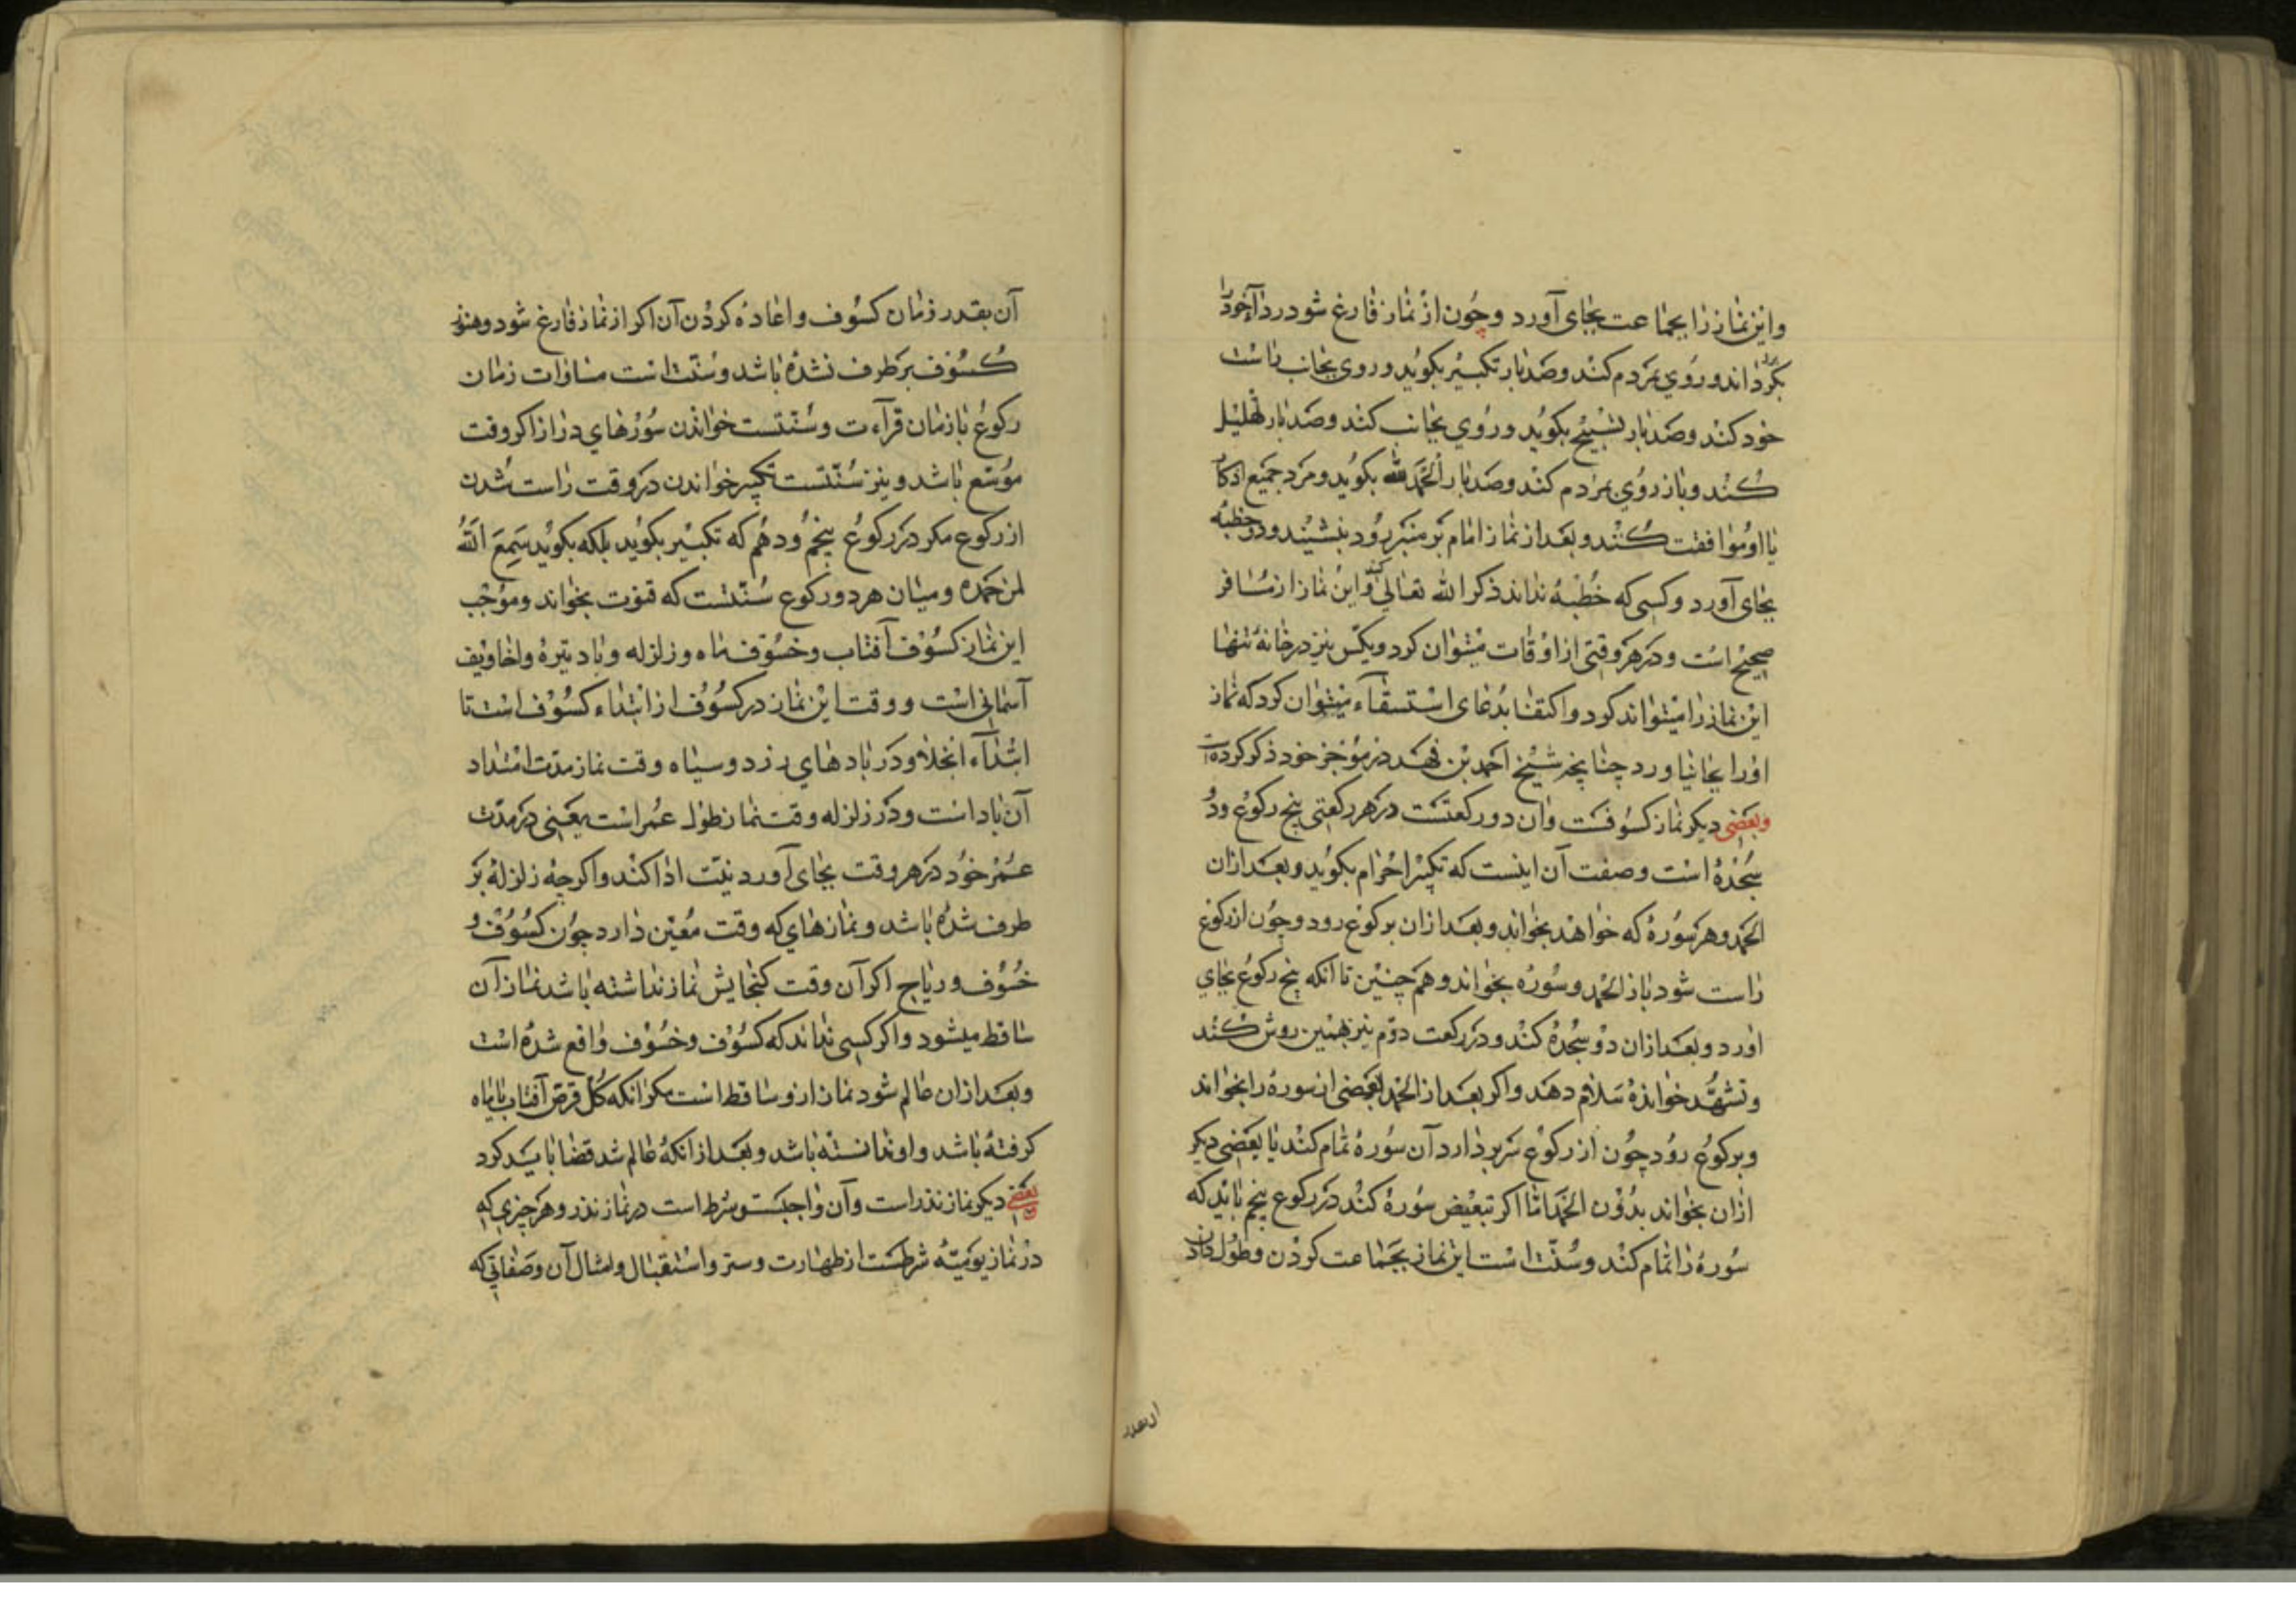 واین نماز را بجماعت بجای آورد وچون از نماز فارغ شود ردآء خود را
بگرداند وروی بمردم کند وصد بار تکبیر بکوید وروی بجانب راست
خود کند وصد بار تسبیح بکوید وروی بجانب کند وصد بار تهلیل
کند وباز روی بمردم کند وصد بار الحمد لله بکوید ومردم جمیع اذکار
با او موافقت کنند وبعد از نماز امام بر منبر رود بنشیند ودو خطبه
بجای آورد وکسی که خطبه نداند ذکر الله تعالی کند واین نماز از مسافر
صحیح است ودر هر وقتی از اوقات میتوان کرد ویکس نیز در خانه تنها
این نماز را میتواند کرد واکتفا بدعای استسقآء میتوان کرد که نماز
اورا بجا نیاورد چنانچه شیخ احمد بن فهد در موجز خود ذکر کرده است
وبعضی دیکر نماز کسوفست وآن دو رکعتست در هر رکعتی پنج رکوع ودو
سجده است وصفت آن اینست که تکبیر احرام بکوید وبعد ازان
الحمد وهر سوره که خواهد بخواند وبعد ازان برکوع رود وچون از رکوع
راست شود باز الحمد وسوره بخواند وهم چنین تا انکه پنج رکوع بجای
اورد وبعد ازان دو سجده کند ودر رکعت دوم نیز بهمین روش کند
وتشهد خوانده سلام دهد واکر بعد از الحمد بعضی از سوره را بخواند
وبرکوع رود چون از رکوع سر بر دارد آن سوره تمام کند یا بعضی دیکر
ازان بخواند بدون الحمد اما اکر تبعیض سوره کند در رکوع پنجم باید که
سوره را تمام کند وسنت است این نماز بجماعت کردن وطول دادن
آن بقدر
آن بقدر زمان کسوف واعاده کردن آن اکر از نماز فارغ شود وهنوز
کسوف بر طرف نشده باشد وسنت است مساوات زمان
رکوع با زمان قرآءت وسنتست خواندن سورهای دراز اکر وقت
موسع باشد ونیز سنتست تکبیر خواندن در وقت راست شدن
از رکوع مکر در رکوع پنجم ودهم که تکبیر نکوید بلکه بکوید سمع الله
لمن حمده ومیان هر دو رکوع سنتست که قنوت بخواند وموجب
این نماز کسوف آفتاب وخسوف ماه وزلزله وباد تیره واخاویف
آسمانی است ووقت این نماز در کسوف از ابتداء کسوف است تا
ابتدآء انجلا ودر بادهای زرد وسیاه وقت نماز مدت امتداد
آن باد است ودر زلزله وقت نماز طول عمر است یعنی در مدت
عمر خود در هر وقت بجای آورد نیت ادا کند واکر چه زلزله بر
طرف شده باشد ونمازهای که وقت معین دارد چون کسوف و
خسوف وریاح اکر آن وقت کنجایش نماز نداشته باشد نماز آن
ساقط میشود واکر کسی نداند که کسوف وخسوف واقع شده است
وبعد ازان عالم شود نماز ازو ساقط است مکر انکه کل قرص آفتاب یا ماه
کرفته باشد واو ندانسته باشد وبعد از انکه عالم شد قضا باید کرد
بعضی دیکر نماز نذر است وآن واجبست وشرط است در نماز نذر وهر چیزی که
در نماز یومیه شرطست از طهارت وستر واستقبال وامثال آن وصفاتی که